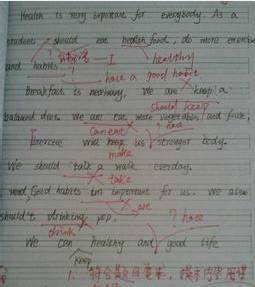 Health is very important for everybody. As a
students should eat health food, do more exercise
and habits I healthy
have a good habit
Breakfast is necessary, We are keep a
should keep
balanced diet. We are eat more vegetables and fruit,
can eat ? food
Exercise will keep us stronger body.
make
We should talk a walk everyday.
take
Good habits im important for us. We also
are
shouldn't drinking pop. ? have
drink
We can healthy and good life
keep
1.